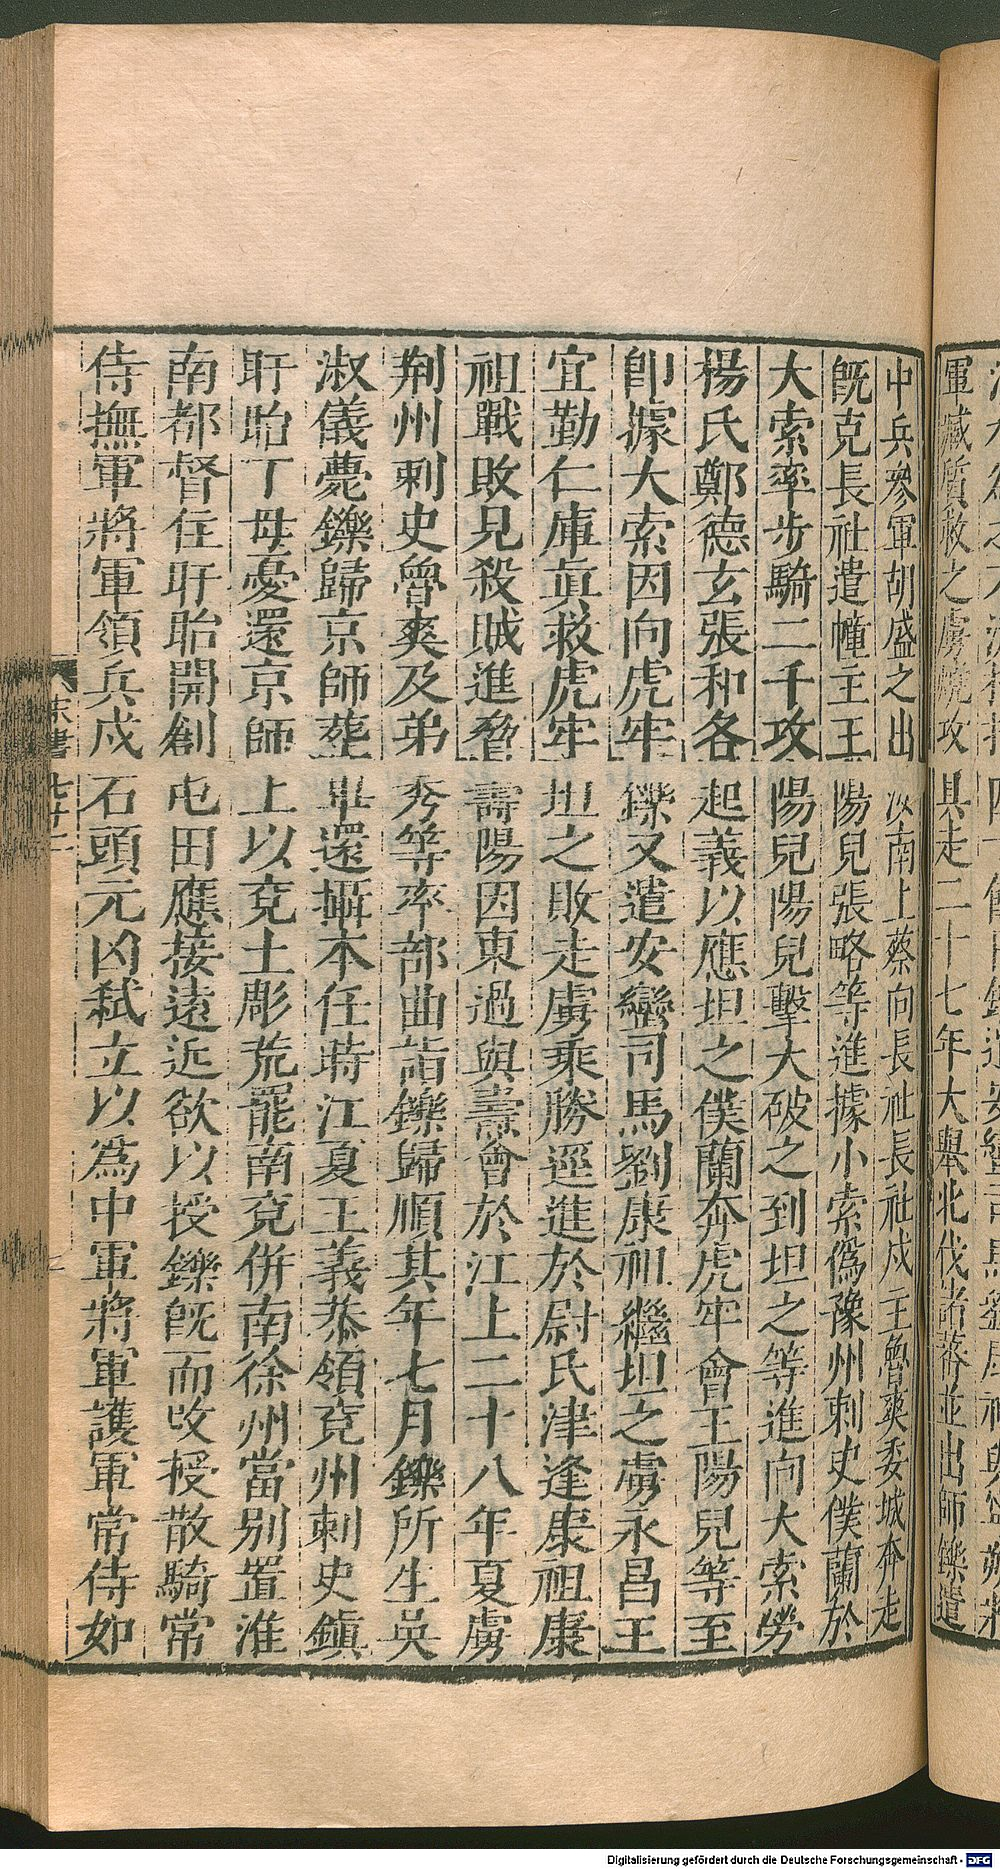 軍臧質救之虜 攻 具走二十七年大舉北伐諸蕃並出師鑠遣
中兵參軍胡盛之出汝南上蔡向長社長社戍主魯爽委城奔走
旣克長社遣幢主王陽兒張略等進據小索僞豫州刺史僕蘭於
大索率步騎二千攻陽兒陽兒擊大破之到坦之等進向大索勞
楊氏鄭德玄張和各起義以應坦之僕蘭奔虎牢會王陽兒等至
卽據大索因向虎牢鑠又遣安蠻司馬劉康祖繼坦之虜永昌王
宜勤仁庫眞救虎牢坦之敗走虜乘勝逕進於尉氏津逢康祖康
祖戰敗見殺賊進脅壽陽因東過與燾會於江上二十八年夏虜
荆州刺史魯爽及弟秀等率部曲詣鑠歸順其年七月鑠所生吳
淑儀薨鑠歸京師葬畢還攝本任時江夏王義恭領兗州刺史鎭
盱眙丁母憂還京師上以兗土彫荒罷南兗併南徐州當別置淮
南都督住盱眙開創屯田應接遠近欲以授鑠旣而改授散騎常
侍撫軍將軍領兵戍石頭元凶弒立以爲中軍將軍護軍常侍如
宋書 七十二
Digitalisierung gefördert durch die Deutsche Forschungsgemeinschaft - DFG